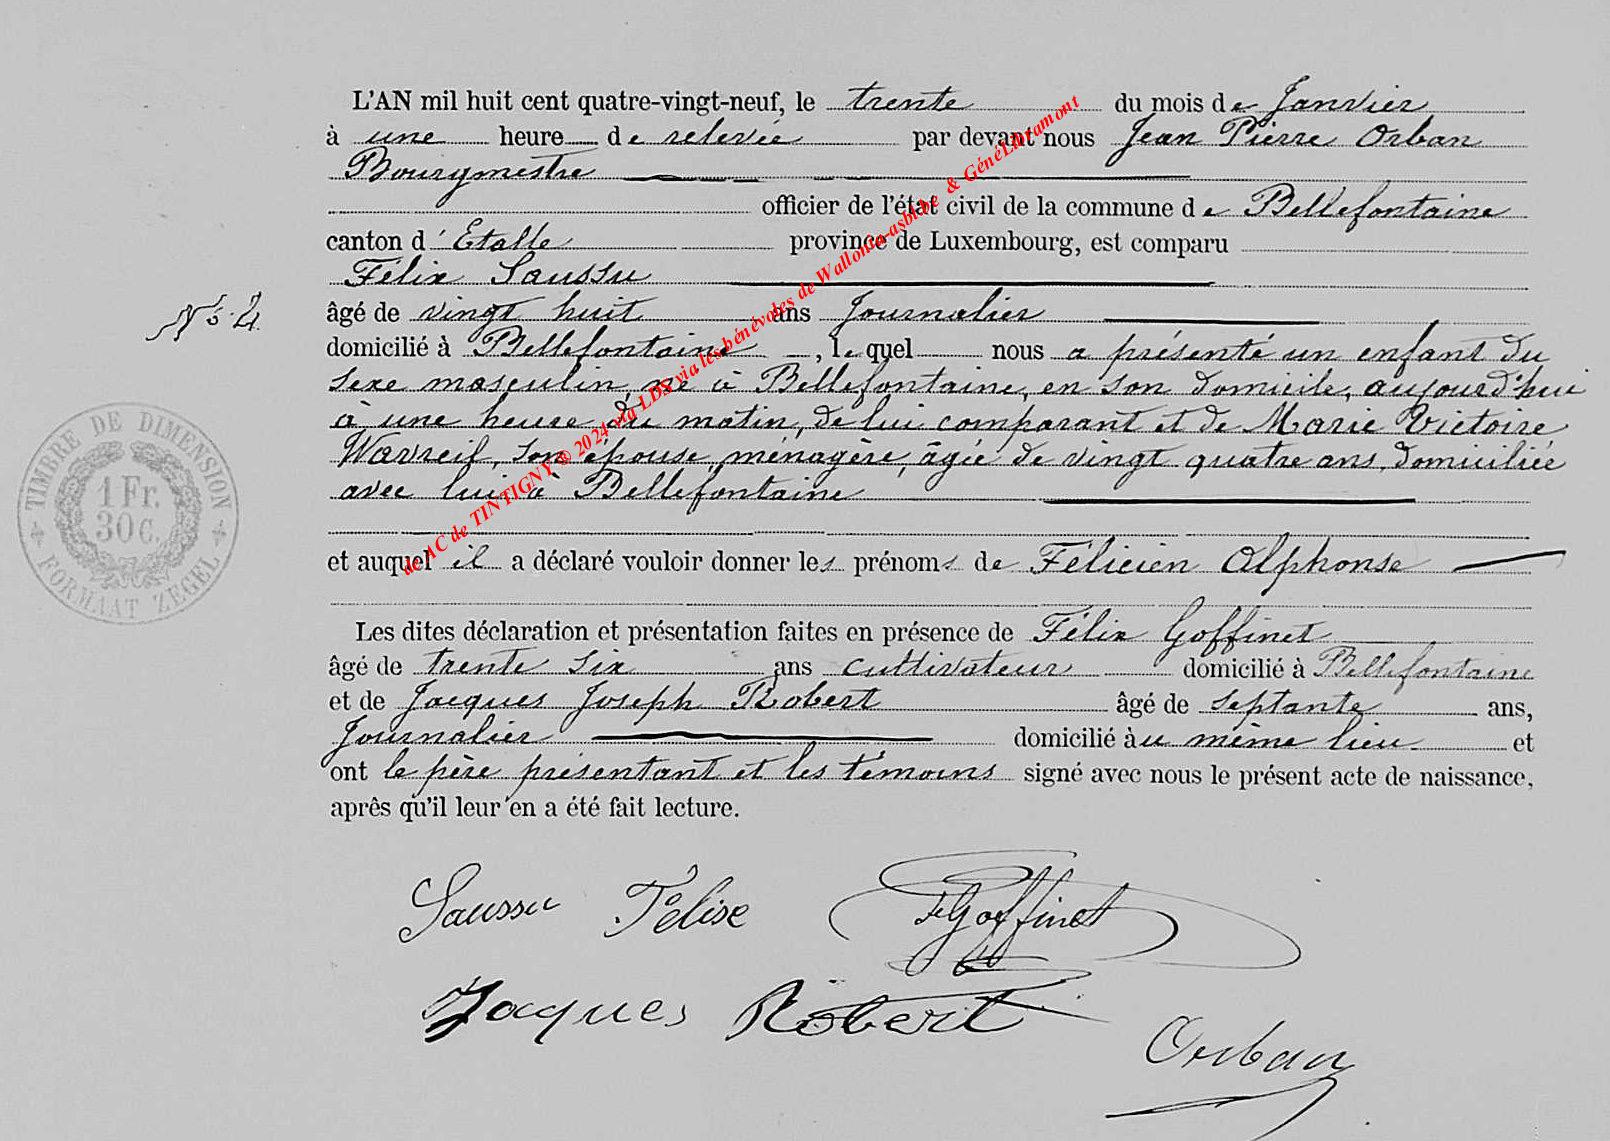 L'AN mil huit cent quatre-vingt-neuf, le trente du mois de Janvier
à une heure de relevée par devant nous Jean Pierre Orban
Bourgmestre
officier de l'état civil de la commune de Bellefontaine
canton d'Etalle province de Luxembourg, est comparu
Félix Saussu
âgé de vingt huit ans Journalier
N° 2.
domicilié à Bellefontaine, lequel nous a présenté un enfant du
sexe masculin, né à Bellefontaine, en son domicile, aujourd'hui
à une heure du matin, de lui comparant et de Marie Victoire
Wavreil, son épouse, ménagère, âgée de vingt quatre ans, domiciliée
avec lui à Bellefontaine
et auquel il a déclaré vouloir donner les prénoms de Félicien Alphonse
Les dites déclaration et présentation faites en présence de Félix Goffinet
âgé de trente six ans cultivateur domicilié à Bellefontaine
et de Jacques Joseph Robert âgé de septante ans,
Journalier domicilié au même lieu et
ont le père présentant et les témoins signé avec nous le présent acte de naissance,
après qu'il leur en a été fait lecture.
Saussu Félixe FGoffinet
Jacques Robert
Orban
TIMBRE DE DIMENSION
1 Fr.
30 C.
FORMAAT ZEGEL
de AC de TINTIGNY @ 2024 via LDS via les bénévoles de Wallonia-asbl.be & GénéLutramont